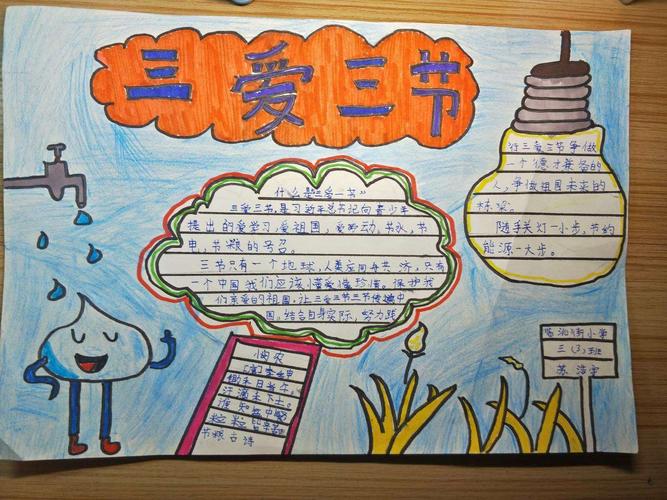 三爱三节
什么是三爱三节"
三爱三节,是习近平总书记向青少年
提出的爱学习,爱祖国,爱劳动,节水,节
电,节粮的号召。
三节只有一个地球,人类应同舟共济,只有
一个中国我们应该懂爱懂珍惜。保护我
们亲爱的祖国,让三爱三节三节传遍中
国。结合自身实际,努力践
行三爱三节争做
一个德才兼备的
人,争做祖国未来的
栋梁。
随手关灯一小步,节约
能源一大步。
悯农
锄禾日当午,
汗滴禾下土。
谁知盘中餐
粒粒皆辛苦
节粮古诗
街小学
三(3)班
苏浩宇